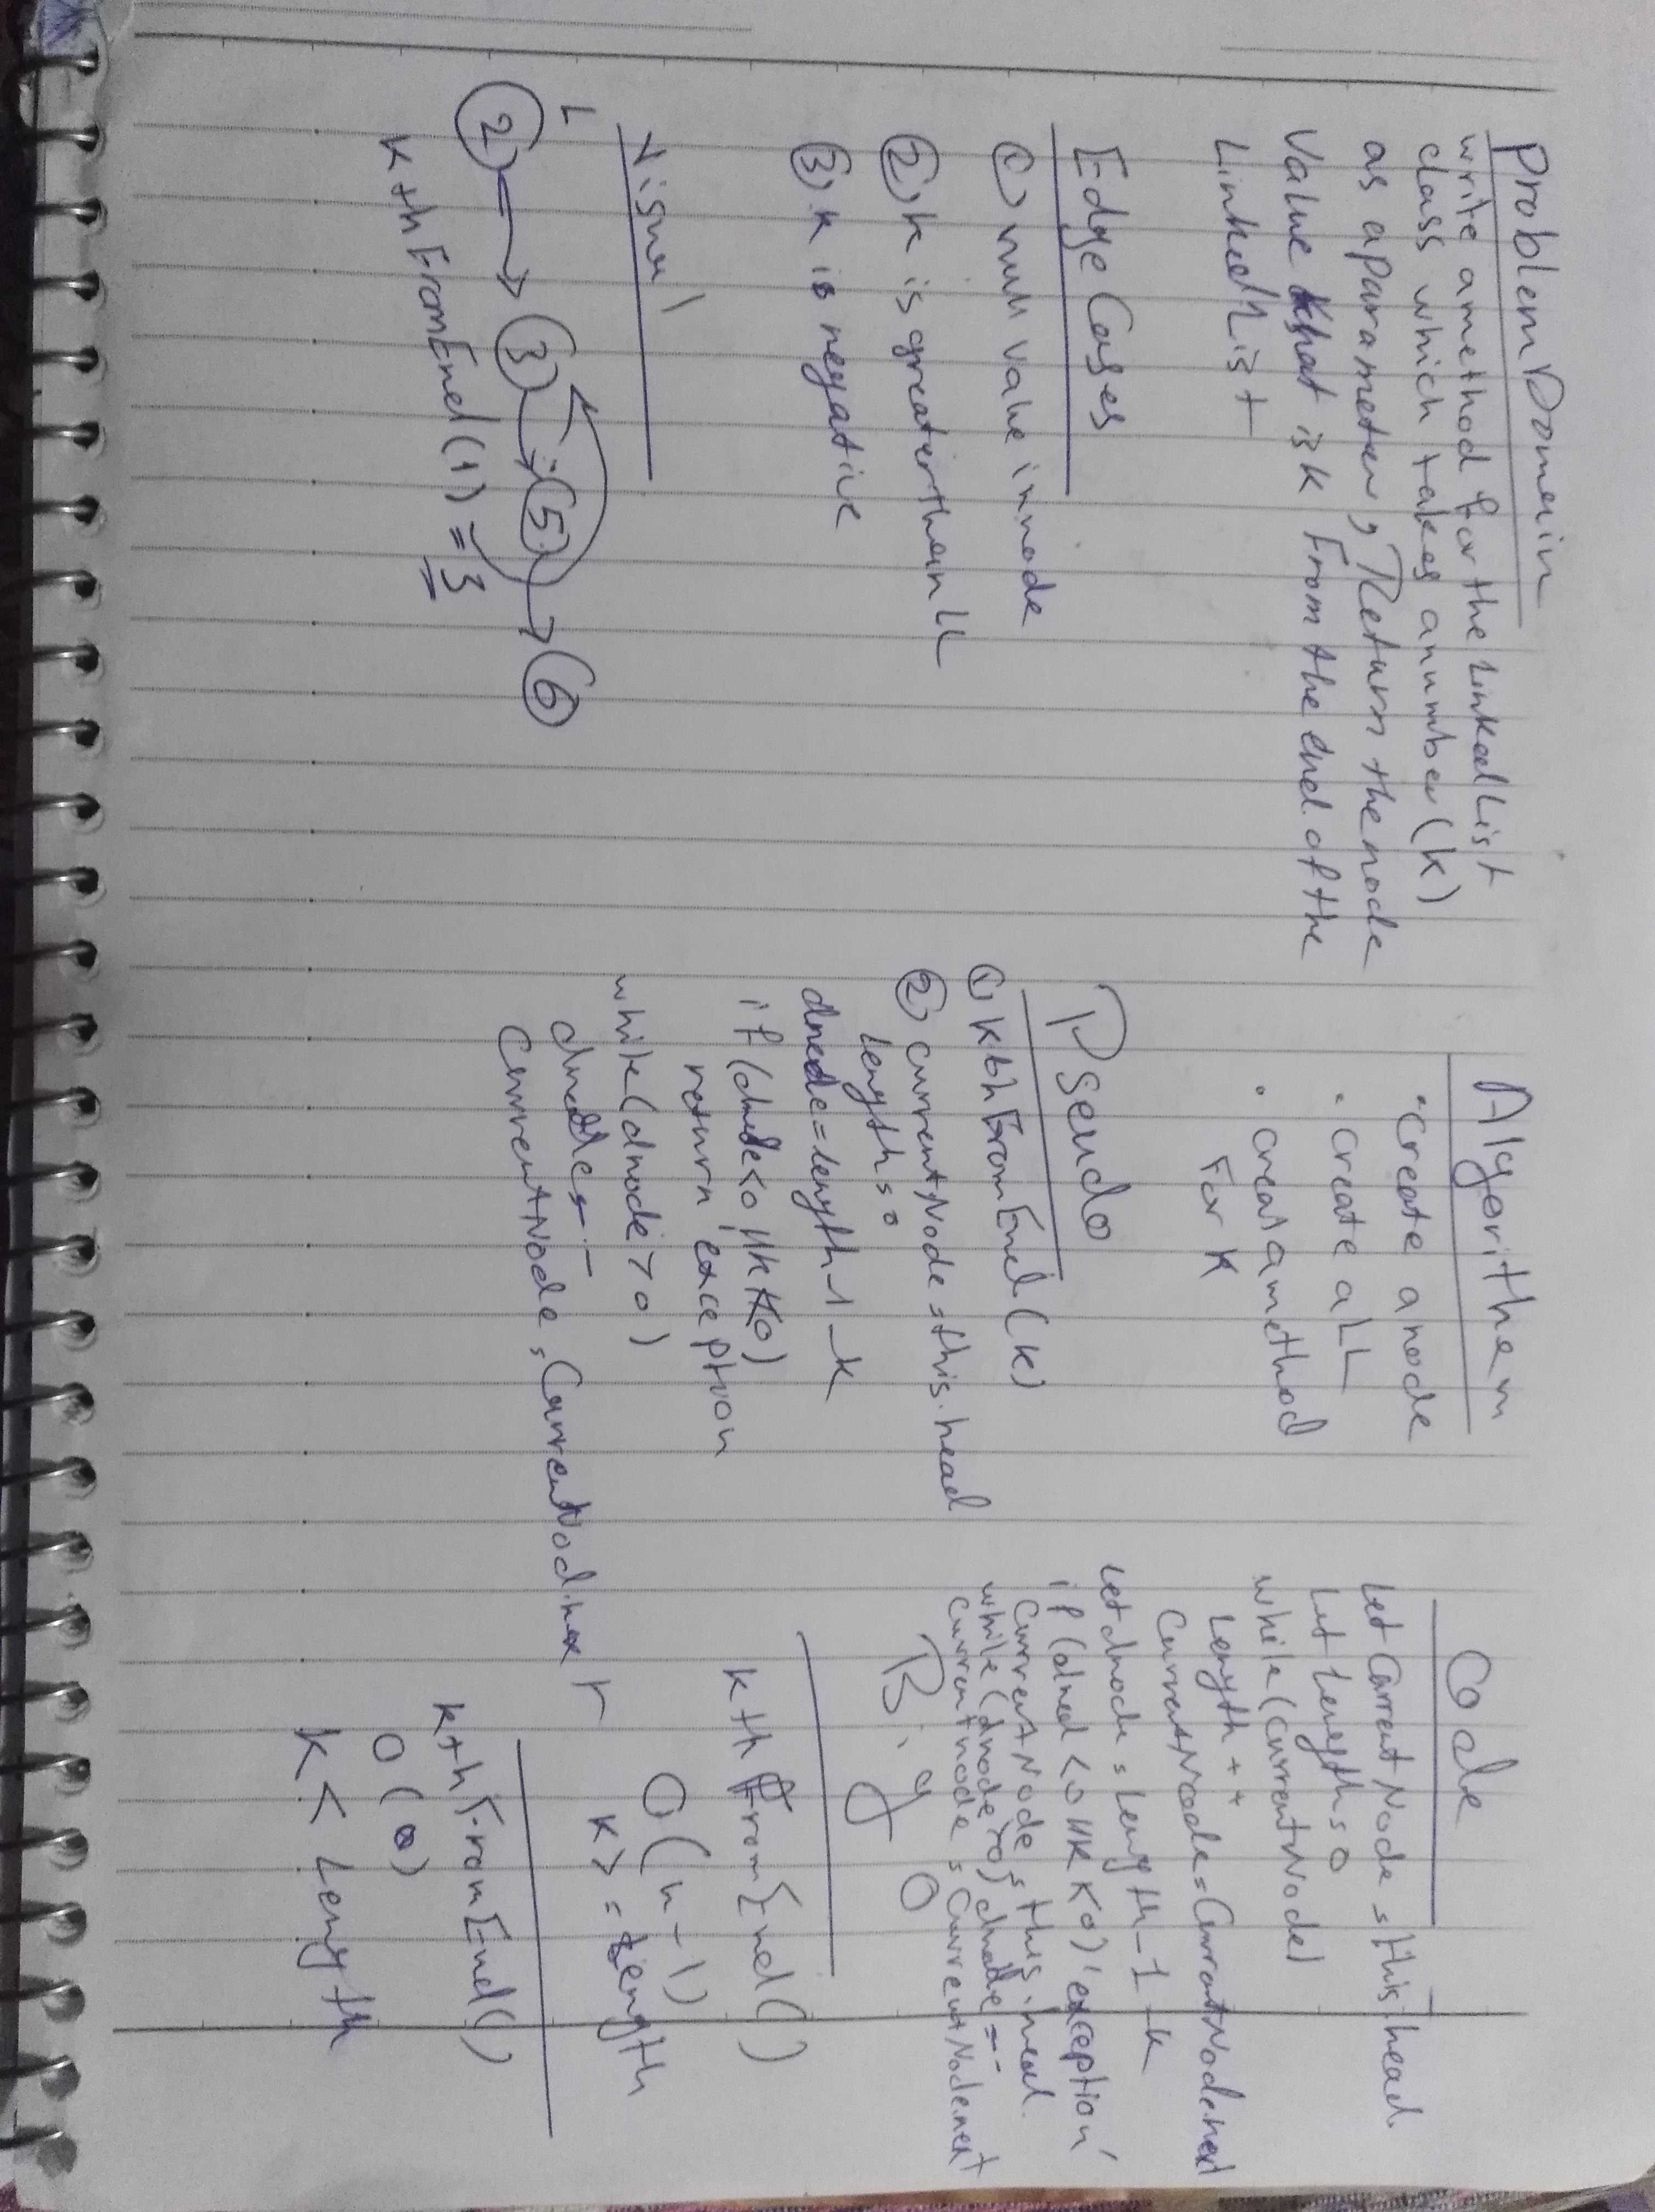 Problem Domain
write a method for the Linked List
class which takes a number (k)
as a parameter, Return the node
Value that is k From the end of the
Linked List
Edge Cases
① null value in node
② k is greater than LL
③ k is negative
Visual
L
2 → 3 → 5 → 6
kthFromEnd(1) = 3
Algorithem
• Create a node
• Create a LL
• Creat a method
For K
Pseudo
① kthFromEnd(k)
② currentNode = this.head
length = 0
dnode = length - 1 - k
if (dnode < 0 || k < 0)
return 'exception
while (dnode > 0)
dnode -= -
CurrentNode = CurrentNod.next
Code
Let CurrentNode = this.head
Let length = 0
while (CurrentNode)
Length ++
CurrentNode = CurrentNode.next
Let dnode = Length - 1 - k
if (dned < 0 || k < 0) 'exception'
CurrentNode = this.head.
while (dnode > 0) dnode = -
Currentnode = CurrentNode.next
Big O
kthFromEnd()
O(n-1)
k > = Length
kthFromEnd()
O(0)
K < Length